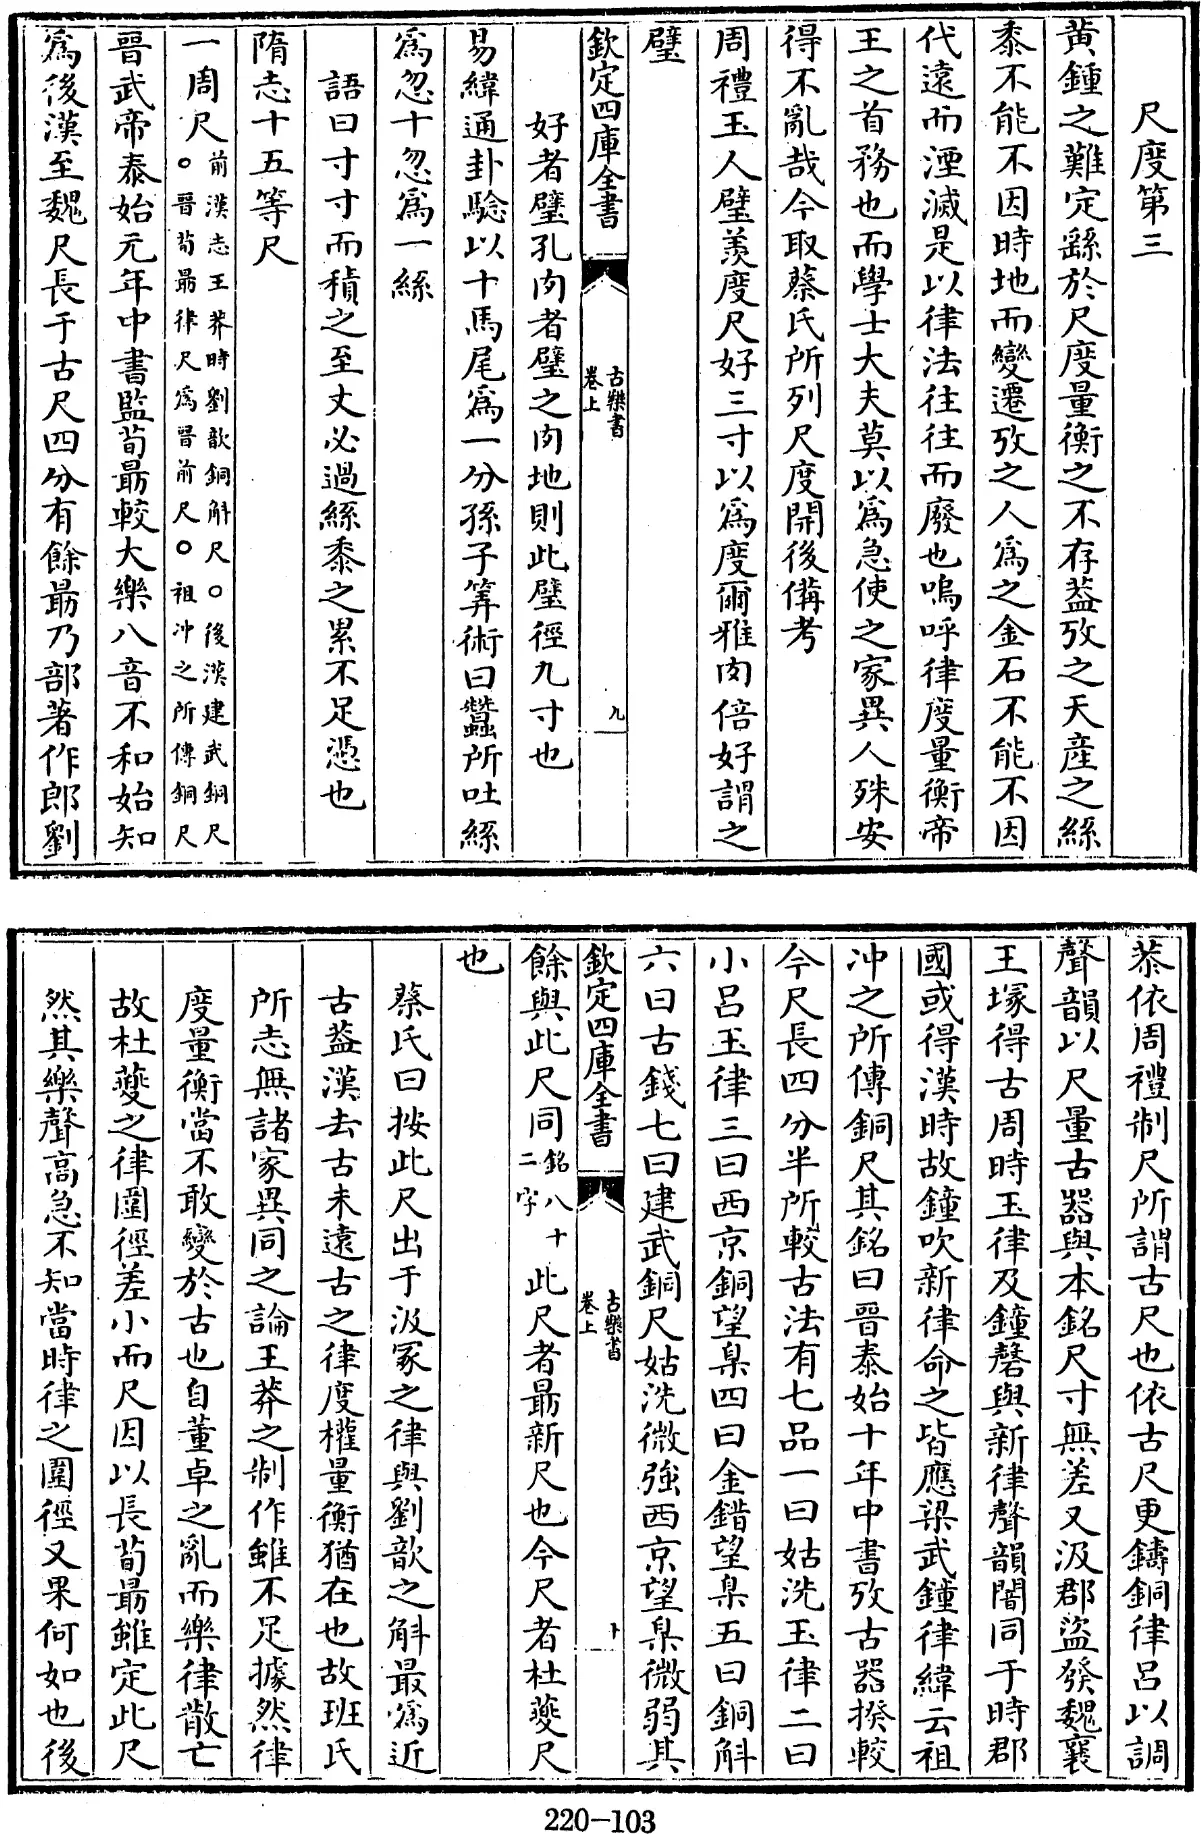 尺度第三
黄鍾之難定繇於尺度量衡之不存葢攷之天産之絲
黍不能不因時地而變遷攷之人為之金石不能不因
代遠而湮滅是以律法往往而廢也嗚呼律度量衡帝
王之首務也而學士大夫莫以為急使之家異人殊安
得不亂哉今取蔡氏所列尺度開後備考
周禮玉人璧羨度尺好三寸以為度爾雅肉倍好謂之
璧
欽定四庫全書
古樂書
卷上
九
好者璧孔肉者璧之肉地則此璧徑九寸也
易緯通卦驗以十馬尾為一分孫子筭術曰蠶所吐絲
為忽十忽為一絲
語曰寸寸而積之至丈必過絲黍之累不足憑也
隋志十五等尺
一周尺前漢志王莽時劉歆銅斛尺○後漢建武銅尺
○晉荀勗律尺為晉前尺○祖冲之所傳銅尺
晉武帝泰始元年中書監荀勗較大樂八音不和始知
為後漢至魏尺長于古尺四分有餘勗乃部著作郎劉
恭依周禮制尺所謂古尺也依古尺更鑄銅律呂以調
聲韻以尺量古器與本銘尺寸無差又汲郡盜發魏襄
王塚得古周時玉律及鐘磬與新律聲韻闇同于時郡
國或得漢時故鐘吹新律命之皆應梁武鐘律緯云祖
冲之所傳銅尺其銘曰晉泰始十年中書攷古器揆較
今尺長四分半所較古法有七品一曰姑洗玉律二曰
小呂玉律三曰西京銅望臬四曰金錯望臬五曰銅斛
六曰古錢七曰建武銅尺姑洗微強西京望臬微弱其
欽定四庫全書
古樂書
卷上
十
餘與此尺同銘八十二字此尺者勗新尺也今尺者杜夔尺
也
蔡氏曰按此尺出于汲冢之律與劉歆之斛最為近
古葢漢去古未遠古之律度權量衡猶在也故班氏
所志無諸家異同之論王莽之制作雖不足據然律
度量衡當不敢變於古也自董卓之亂而樂律散亡
故杜夔之律圍徑差小而尺因以長荀勗雖定此尺
然其樂聲高急不知當時律之圍徑又果何如也後
220-103